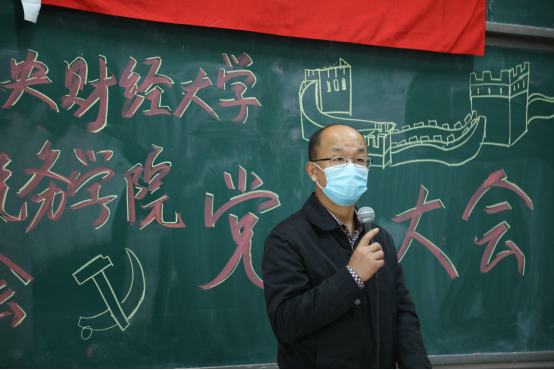 央财经大学
务学院
党 大会
会